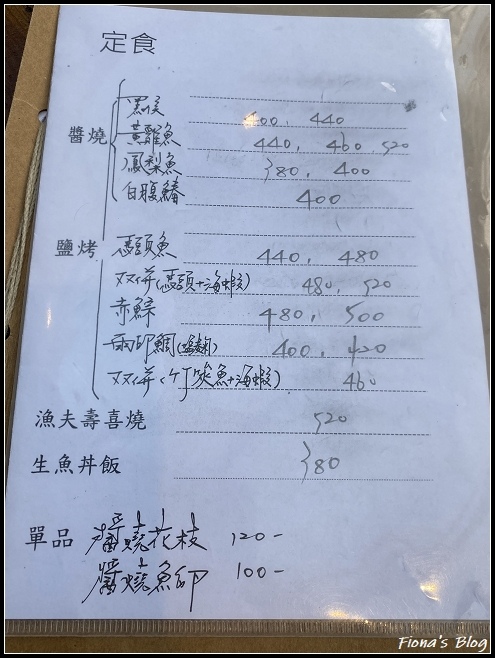 定食
黑喉 400, 440
醬燒 黃雞魚 440, 460 520
鳳梨魚 380, 400
白腹鰆 400
鹽烤 馬頭魚 440, 480
双併(馬頭+海蝦) 480, 520
赤鯮 480, 500
雨印鯛 400, 420
双併(竹筴魚+海蝦) 460
漁夫壽喜燒 520
生魚丼飯 380
單品 醬燒花枝 120-
醬燒魚卵 100-
Fiona's Blog